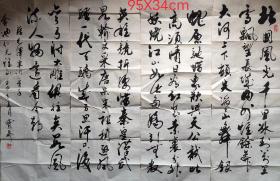 95X34cm
北国风光千里冰封万里雪
飘望长城内外惟余莽莽
大河上下顿失滔滔山舞银
蛇原驰蜡象欲与天公试比
高须晴日看红装素裹分外
妖娆江山如此多娇引无数
英雄竞折腰惜秦皇汉武
略输文采唐宗宋祖稍逊风
骚一代天骄成吉思汗只识
弯弓射大雕俱往矣数风
流人物还看今朝